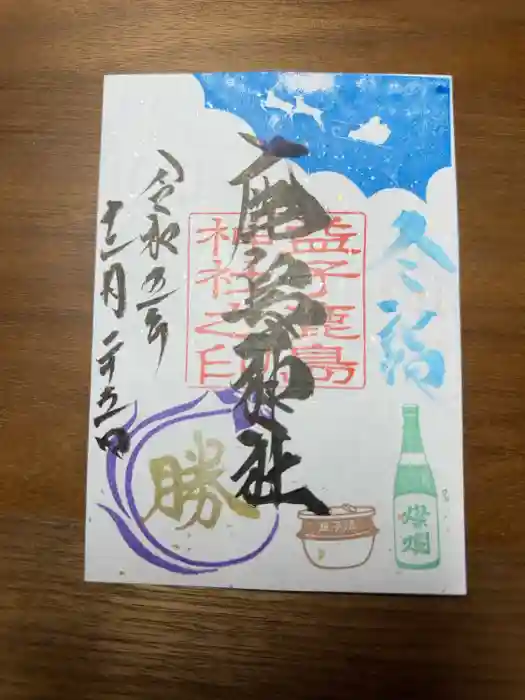 冬詣
鹿島神社
益子鹿島
神社之印
令和五年
十二月二十五日
勝
燦爛